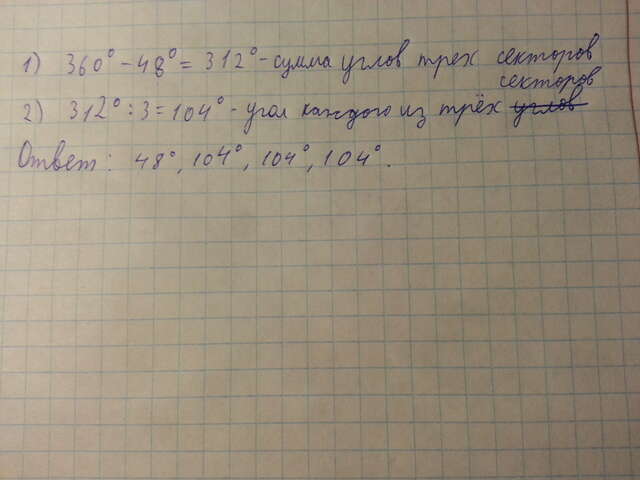 1) 360° - 48° = 312° - сумма углов трех секторов
секторов
2) 312° : 3 = 104° - угол каждого из трёх углов
Ответ: 48°, 104°, 104°, 104°.